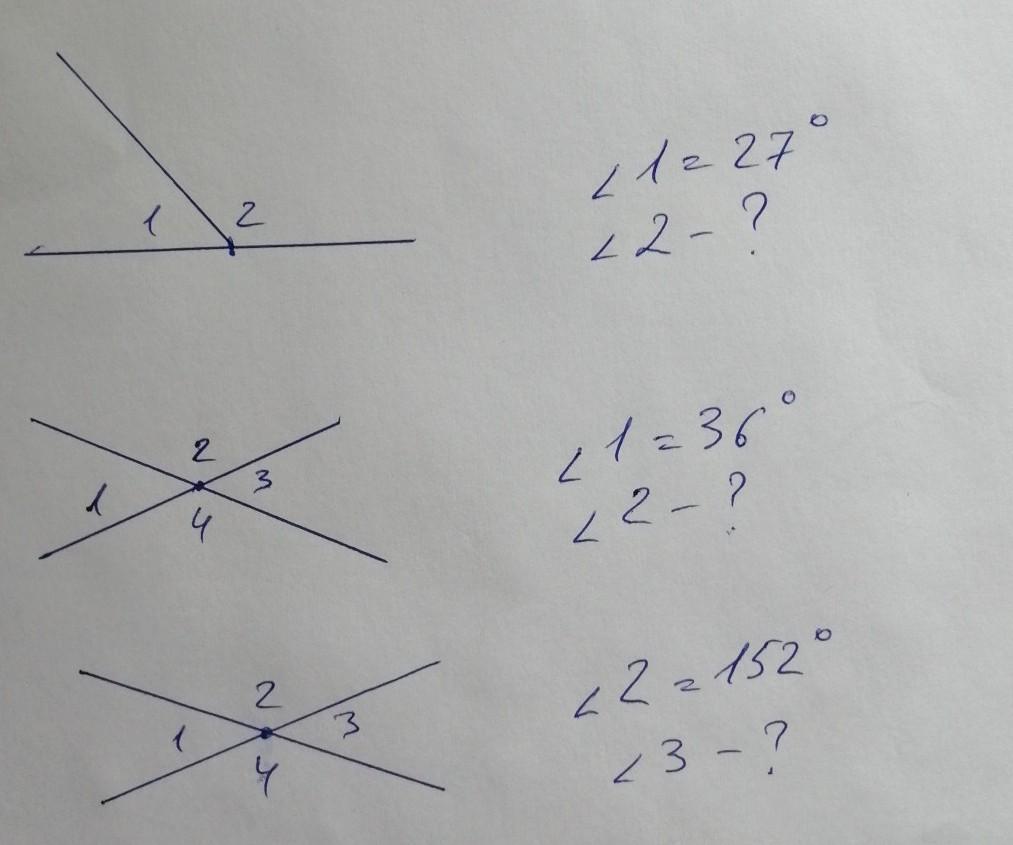 1 2
∠1 = 27°
∠2 - ?
2
1 3
4
∠1 = 36°
∠2 - ?
2
1 3
4
∠2 = 152°
∠3 - ?